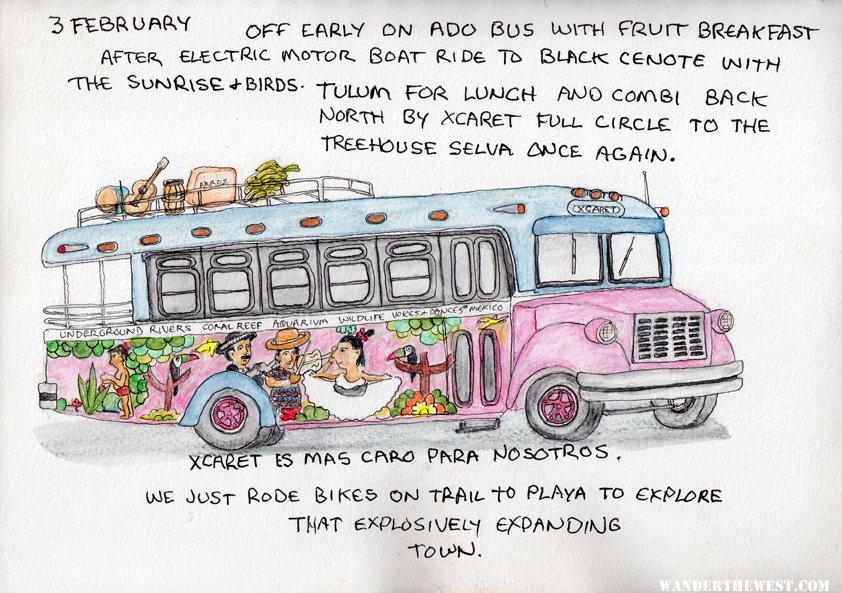 3 FEBRUARY OFF EARLY ON ADO BUS WITH FRUIT BREAKFAST
AFTER ELECTRIC MOTOR BOAT RIDE TO BLACK CENOTE WITH
THE SUNRISE + BIRDS. TULUM FOR LUNCH AND COMBI BACK
NORTH BY XCARET FULL CIRCLE TO THE
TREEHOUSE SELVA ONCE AGAIN.
ARROZ
XCARET
UNDERGROUND RIVERS CORAL REEF AQUARIUM WILDLIFE VOICES + DANCES MEXICO
XCARET ES MAS CARO PARA NOSOTROS.
WE JUST RODE BIKES ON TRAIL TO PLAYA TO EXPLORE
THAT EXPLOSIVELY EXPANDING
TOWN.
WANDERTHEWEST.COM